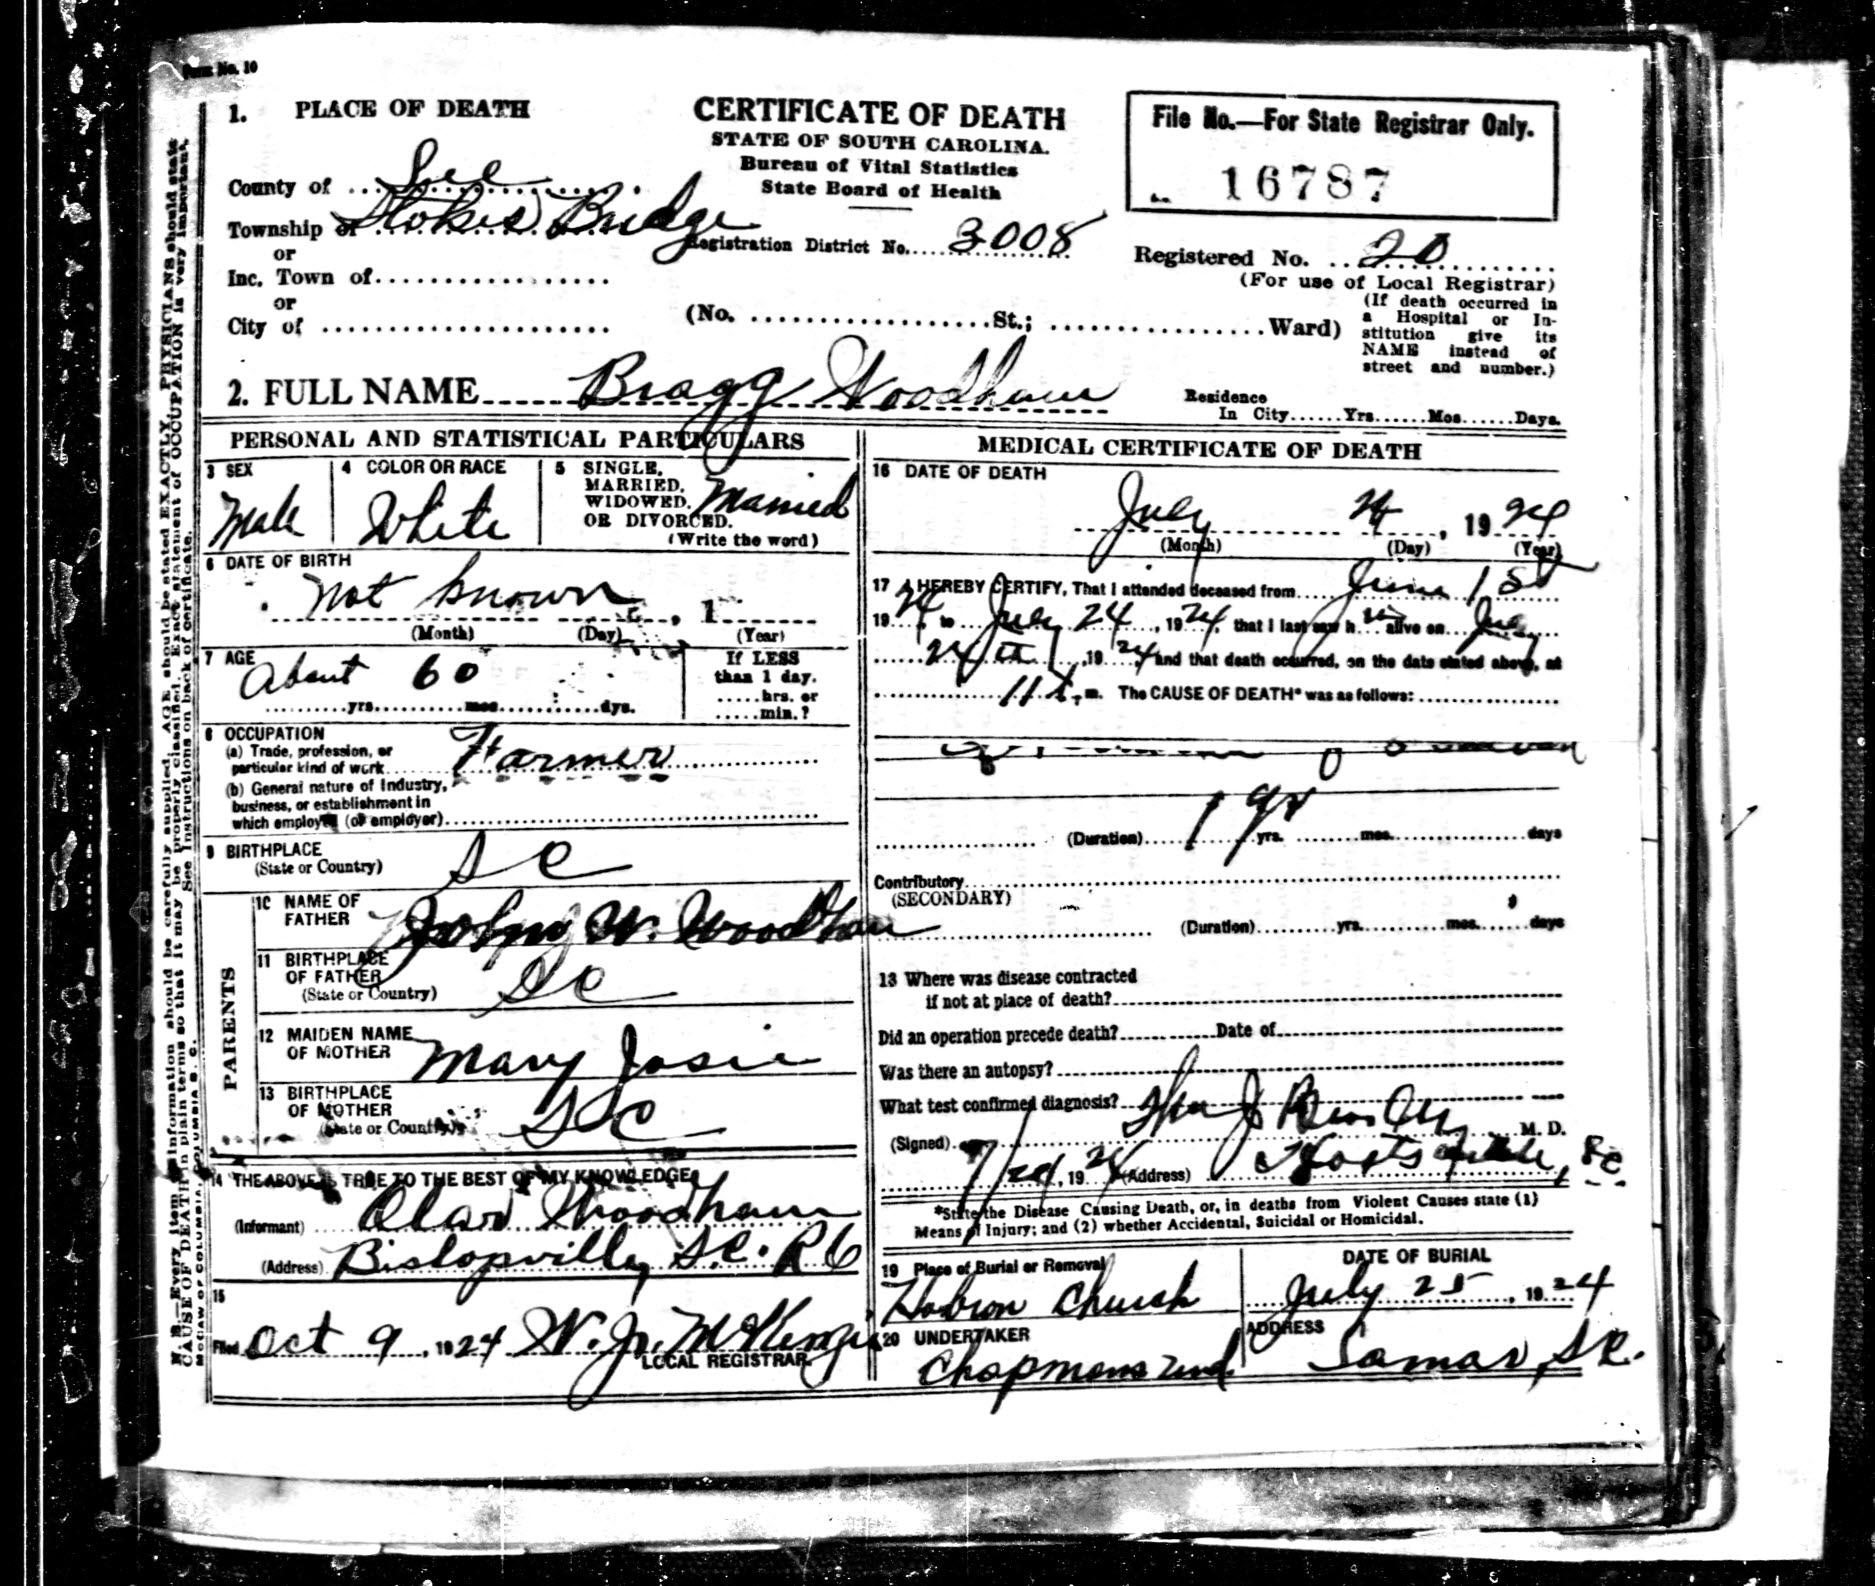 Form No. 10
1. PLACE OF DEATH
County of Lee
Township of Stokes Bridge
or
Inc. Town of
or
City of
CERTIFICATE OF DEATH
STATE OF SOUTH CAROLINA.
Bureau of Vital Statistics
State Board of Health
Registration District No. 3008
(No. St.; Ward)
File No.—For State Registrar Only.
16787
Registered No. 20
(For use of Local Registrar)
(If death occurred in
a Hospital or In-
stitution give its
NAME instead of
street and number.)
2. FULL NAME Bragg Woodham
Residence
In City Yrs. Mos. Days.
PERSONAL AND STATISTICAL PARTICULARS
3 SEX
Male
4 COLOR OR RACE
White
5 SINGLE,
MARRIED,
WIDOWED,
OR DIVORCED.
Married
(Write the word)
6 DATE OF BIRTH
not known , 1
(Month) (Day) (Year)
7 AGE
About 60
yrs. mos. dys.
If LESS
than 1 day.
hrs. or
min.?
8 OCCUPATION
(a) Trade, profession, or
particular kind of work Farmer
(b) General nature of Industry,
business, or establishment in
which employed (or employer)
9 BIRTHPLACE
(State or Country)
S C
PARENTS
10 NAME OF
FATHER
John W. Woodham
11 BIRTHPLACE
OF FATHER
(State or Country)
S C
12 MAIDEN NAME
OF MOTHER
Mary Josie
13 BIRTHPLACE
OF MOTHER
(State or Country)
S C
14 THE ABOVE IS TRUE TO THE BEST OF MY KNOWLEDGE
(Informant) Woodham
(Address) Bishopville, S.C. R 6
15
Filed Oct 9, 1924 McKenzie
LOCAL REGISTRAR
MEDICAL CERTIFICATE OF DEATH
16 DATE OF DEATH
July 24, 1924
(Month) (Day) (Year)
17 I HEREBY CERTIFY, That I attended deceased from June 1st
1924, to July 24, 1924, that I last saw h im alive on July
24th, 1924, and that death occurred, on the date stated above, at
11 m. The CAUSE OF DEATH* was as follows:
(Duration) 1 yr yrs. mos. days
Contributory
(SECONDARY)
(Duration) yrs. mos. days
18 Where was disease contracted
if not at place of death?
Did an operation precede death? Date of
Was there an autopsy?
What test confirmed diagnosis?
(Signed) M. D.
7/24, 1924 (Address) Hartsville, SC
*State the Disease Causing Death, or, in deaths from Violent Causes state (1)
Means of Injury; and (2) whether Accidental, Suicidal or Homicidal.
19 Place of Burial or Removal
Hebron Church
DATE OF BURIAL
July 25, 1924
20 UNDERTAKER
Chapmans Und
ADDRESS
Lamar, S.C.
N. B.—Every item of information should be carefully supplied. AGE should be stated EXACTLY. PHYSICIANS should state
CAUSE OF DEATH in plain terms so that it may be properly classified. Exact statement of OCCUPATION is very important.
See instructions on back of certificate.
McCAW OF COLUMBIA, COLUMBIA S. C.